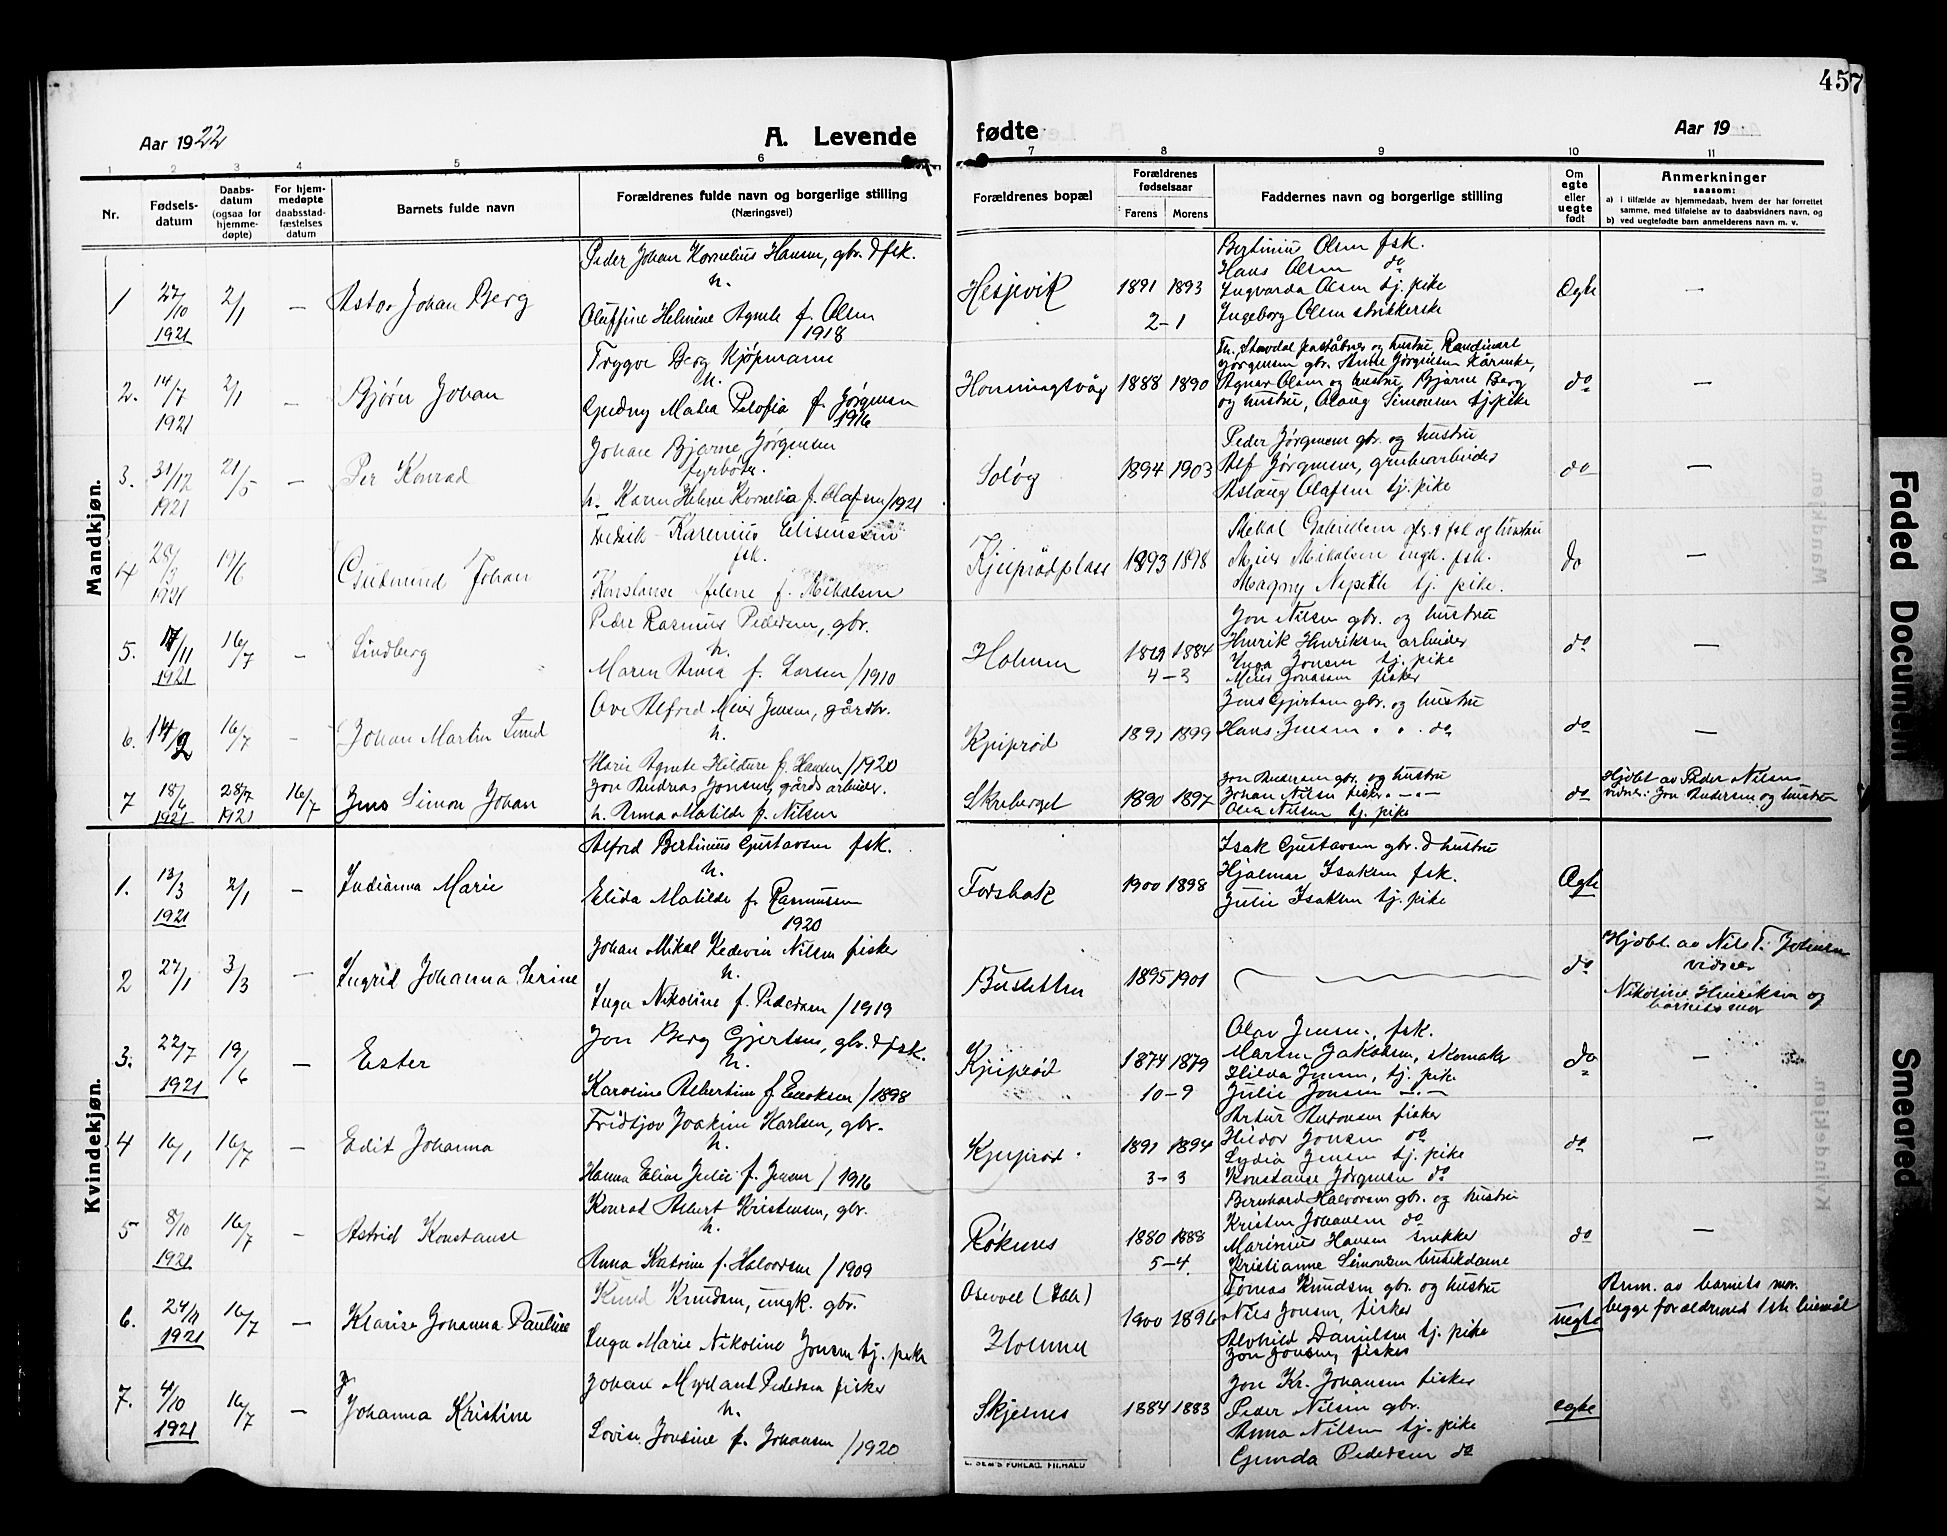 457
Aar 1922
A. Levende fødte
Aar 19
1 2 3 4 5 6 7 8 9 10 11
Nr.
Fødsels-
datum
Daabs-
datum
(ogsaa for
hjemme-
døpte)
For hjem-
medøpte
daabsstad-
fæstelses
datum
Barnets fulde navn
Forældrenes fulde navn og borgerlige stilling
(Næringsvei)
Forældrenes bopæl
Forældrenes
fødselsaar
Farens Morens
Faddernes navn og borgerlige stilling
Om
egte
eller
uegte
født
Anmerkninger
saasom:
a) i tilfælde av hjemmedaab, hvem der har forrettet
samme, med tilføielse av to daabsvidners navn, og
b) ved uegtefødte børn anmelderens navn m. v.
Mandkjøn.
1 27/10 1921 2/1 — Astor Johan Berg
Peder Johan Kornelius Hansen, gbr. & fsk.
h.
Oluffine Helmine Agnete f. Olsen
1918
Hesjevik 1891 1893
2–1
Bertinius Olsen fsk.
Hans Olsen do
Ingvarda Olsen tj. pike
Ingeborg Olsen strikkerske
Egte —
2. 14/7 1921 2/1 — Bjørn Johan
Trygve Berg Kjøpmann
h.
Gudny Matea Petofia f. Jørgensen
1916
Honningsvåg 1888 1890
og hustru, Bjarne Berg
og hustru, Olaug Simonsen tj. pike
do —
3. 31/12 1921 21/5 — Per Konrad
Johan Bjarne Jørgensen
fyrbøter.
h. Karen Helene Kornelia f. Olafsen/1921
Soløg 1894 1903
Peder Jørgensen gbr. og hustru
Alf Jørgensen, grubearbeider
Aslaug Olafsen tj. pike
do —
4 28/9 1921 19/6 Gudmund Johan
Fredrik Karenius Elisenssen
fsk.
Konstanse Helene f. Mikalsen
Kjeiprødplass 1893 1898
Mikal Gabrielsen gbr. & fsk og hustru
Meier Mikalsen ungk. fsk.
Magny tj. pike.
do —
5. 17/11 1921 16/7 — Lindberg
Peder Rasmus Pedersen, gbr.
h.
Maren Anna f. Larsen/1910
Holmen 1884
4–3
Jon Nilsen gbr. og hustru
Henrik Henriksen arbeider
Inga Jonsen tj. pike
Meier Jonassen fisker
do —
6. 14/2 16/7 — Johan Martin Lund
Ove Alfred Meier Jensen, gårdbr.
h.
Marie Agnete Hildure f. Hansen/1920
Kjeiprød 1891 1899
Jens Gjertsen gbr. og hustru
Hans Jensen do
do —
7 18/6 1921 28/7 1921 16/7 Jens Simon Johan
Jon Andreas Jonsen, gårdsarbeider.
h. Anna Matilde f. Nilsen
Skreberget 1890 1897
Jon Andersen gbr. og hustru
Johan Nilsen fisker
Olea Nilsen tj. pike
do
Hjdbt. av Peder Nilsen
vidner: Jon Andersen og hustru
Kvindekjøn.
1. 13/3 1921 2/1 — Indianna Marie
Alfred Bertinius Gustavsen fsk.
h.
Elida Matilde f. Rasmussen
1920
Forsbak 1900 1898
Isak Gustavsen gbr. & hustru
Hjalmar Isaksen fsk.
Julie Isaksen tj. pike
Egte
2 27/1 3/3 — Ingrid Johanna Serine
Johan Mikal Kedevin Nilsen fisker
h.
Inga Nikoline f. Pedersen/1919
Busletten 1895 1901
do
Hjdbt. av Nils T. Johnsen
vidner
Nikoline Henriksen og
barnets mor
3. 22/7 1921 19/6 — Ester
Jon Berg Gjertsen, gbr. & fsk.
h.
Karoline Albertine f. Enoksen/1898
Kjeiprød 1874 1879
10–9
Olav Jensen, fsk.
Martin Jakobsen, skomaker
Hilda Jensen, tj. pike
Julie Jonsen —"—
do —
4 16/1 16/7 — Edit Johanna
Fridtjov Joakim Karlsen, gbr.
h.
Hanna Elise Julie f. Jensen/1916
Kjeiprød. 1891 1894
3–3
Artur Antonsen fisker
Hildor Jonsen do
Lydia Jensen tj. pike
Konstanse Jørgensen do
do —
5 8/10 1921 16/7 — Astrid Konstanse
Konrad Albert Kristensen, gbr.
h.
Anna Katrine f. Halvordsen/1909
Røknes 1880 1888
5–4.
Bernhard Halvorsen gbr. og hustru
Kristen Johansen do
Marinius Hansen snekker
Kristianne Simonsen
do —
6. 24/11 1921 16/7 — Klarise Johanna Pauline
Knud Knudsen, ungk. gbr.
Inga Marie Nikoline Jonsen tj. pike
Holmen 1900 1896
Tomas Knudsen gbr. og hustru
Nils Jonsen, fisker
Alvhild Danielsen tj. pike
Jon Jonsen, fisker
uegte
Anm. av barnets mor.
begge forældrenes 1ste leiermål
7. 4/10 1921 16/7 — Johanna Kristine
Johan Myrland Pedersen fisker
h.
Lovise Jonsine f. Johansen/1920
Skjelnes 1884 1883
Jon Kr. Johansen fisker
Peder Nilsen gbr.
Anna Nilsen tj. pike
Gunda Pedersen do
egte
E. SEM'S FORLAG, FR.HALD
Faded Document
Smeared